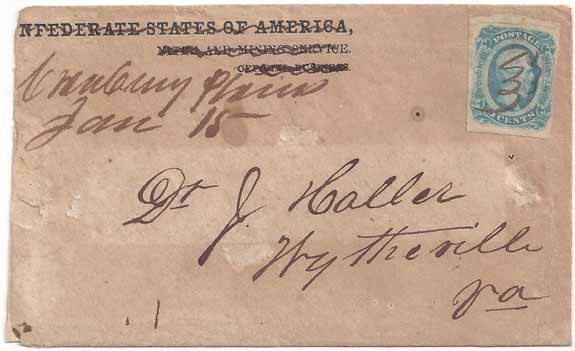 NFEDERATE STATES OF AMERICA,
NITRE AND MINING SERVICE.
OFFICIAL BUSINESS
POSTAGE
CENTS
Cranberry Plains
Jan 15
Dr J. Haller
Wytheville
Va